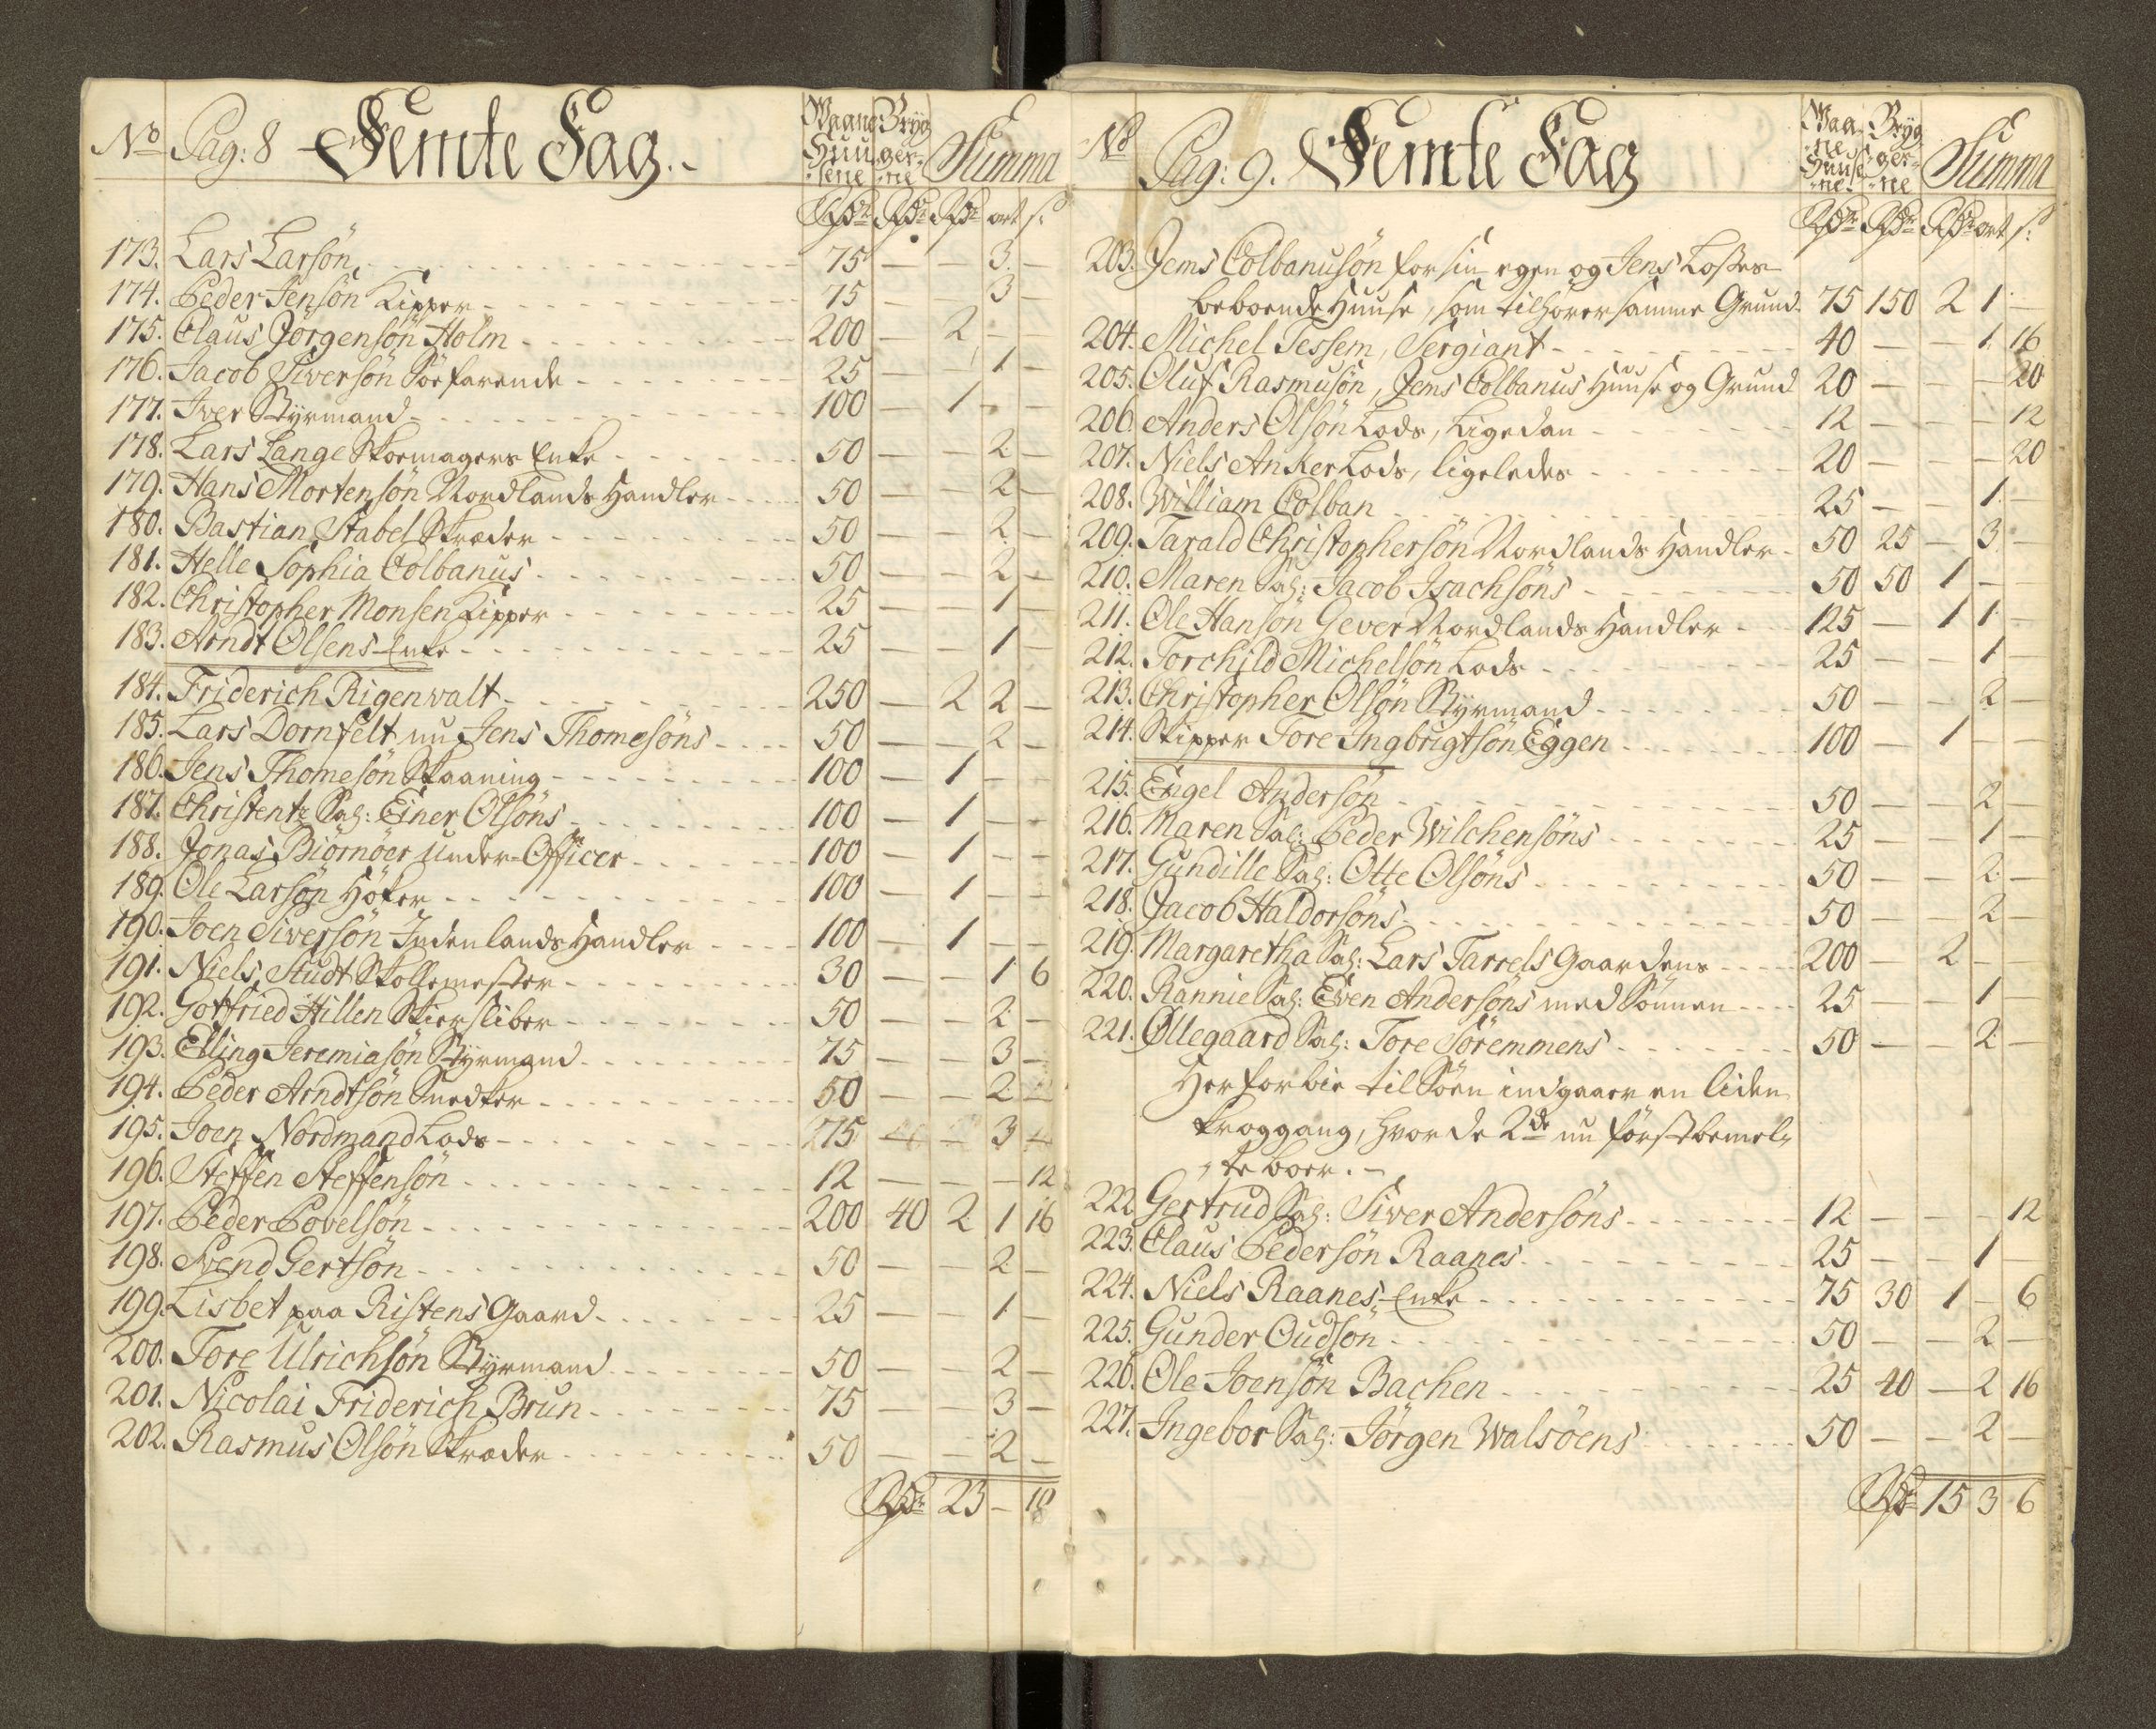 No Pag: 8 Femte Fag.
Waaning
Huu-
sene
Bryg
ger-
ne
Summa
Rdr Rdr Rdr ort s:
173. Lars Larsön 75 — — 3. —
174. Peder Jensön Kipper 75 — — 3 —
175. Claus Jörgensön Holm 200 — 2 — —
176. Jacob Siversön Söefarende 25 — — 1 —
177. Iver Styrmand 100 — 1 — —
178. Lars Lange Skoemagers Enke 50 — — 2 —
179. Hans Mortensön Nordlands Handler 50 — — 2 —
180. Bastian Stabel Skreder 50 — — 2. —
181. Helle Sophia Colbanus 50 — — 2 —
182. Christopher Monsen Kipper 25 — — 1 —
183. Arndt Olsens Enke 25 — — 1 —
184. Friderich Rigenwalt 250 — 2 2 —
185. Lars Dornfelt nu Jens Thomesöns 50 — — 2 —
186. Jens Thomesön Skaaning 100 — 1 — —
187. Christentz Sal: Einer Olsöns 100 — 1 — —
188. Jonas Biörnöer Under-Officer 100 — 1 — —
189. Ole Larsön Höker 100 — 1 — —
190. Joen Siversön Indenlands Handler 100 — 1 — —
191. Niels Studt Skollemester 30 — — 1 6
192. Gotfried Hillen Skiersliber 50 — — 2 —
193. Elling Jeremiasön Styrmand 75 — — 3 —
194. Peder Arndtsön Snedker 50 — — 2 —
195. Joen Nordmand Lods 75 — — 3 —
196. Steffen Steffensön 12 — — — 12
197. Peder Povelsön 200 40 2 1 16
198. Svend Gertsön 50 — — 2 —
199. Lisbet paa Ristens Gaard 25 — — 1 —
200. Tore Ulrichsön Styrmand 50 — — 2 —
201. Nicolai Friderich Brun 75 — — 3 —
202. Rasmus Olsön Skreder 50 — — 2 —
Rdr 23 — 10
No Pag: 9. Femte Fag
Waa-
ne
Huuse
ne
Bryg
ger-
ne
Summa
Rdr Rdr Rdr ort s:
203. Jems Colbanusön for sin egen og Jens Losses
beboende Huuse, som tilhörer samme Grund 75 150 2 1 —
204. Michel Tessem, Sergiant 40 — — 1 16
205. Oluf Rasmusön, Jems Colbanus Huuse og Grund 20 — — — 20
206. Anders Olsön Lods, Ligedan 12 — — — 12
207. Niels Anker Lods, ligeledes 20 — — — 20
208. William Colban 25 — — 1 —
209. Tarald Christophersön Nordlands Handler 50 25 — 3 —
210. Maren Sal: Jacob Isachsöns 50 50 1 — —
211. Ole Hansön Gever Nordlands Handler 125 — 1 1 —
212. Torchild Michelsön Lods 25 — — 1 —
213. Christopher Olsön Styrmand 50 — — 2 —
214. Skipper Tore Ingbrigtsön Eggen 100 — 1 — —
215. Engel Andersön 50 — — 2 —
216. Maren Sal: Peder Wilchensöns 25 — — 1 —
217. Gundille Sal: Otte Olsöns 50 — — 2 —
218. Jacob Haldorsöns 50 — — 2 —
219. Margaretha Sal: Lars Tarrels Gaardens 200 — 2 — —
220. Rannie Sal: Even Andersöns med Sönnen 25 — — 1 —
221. Øllegaard Sal: Tore Söremmens 50 — — 2 —
Her forbie til Söen indgaaer en liden
kroggang, hvor de 2de nu förstbemel-
te boer.
222. Gertrud Sal: Siver Andersöns 12 — — — 12
223. Claus Pedersön Raanes 25 — — 1 —
224. Niels Raanes Enke 75 30 1 — 6
225. Gunder Oudsön 50 — — 2 —
226. Ole Joensön Bachen 25 40 — 2 16
227. Ingebor Sal: Jörgen Walsöens 50 — — 2 —
Rdr 15 3 6